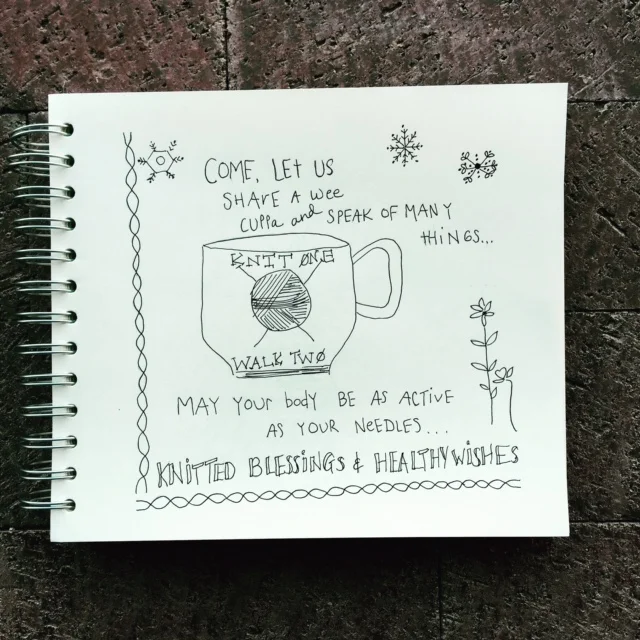 COME, LET US
SHARE A wee
CUPPA and SPEAK OF MANY
THINGS...
KNIT ONE
WALK TWO
MAY YOUR body BE AS ACTIVE
AS YOUR NEEDLES...
KNITTED BLESSINGS & HEALTHY WISHES